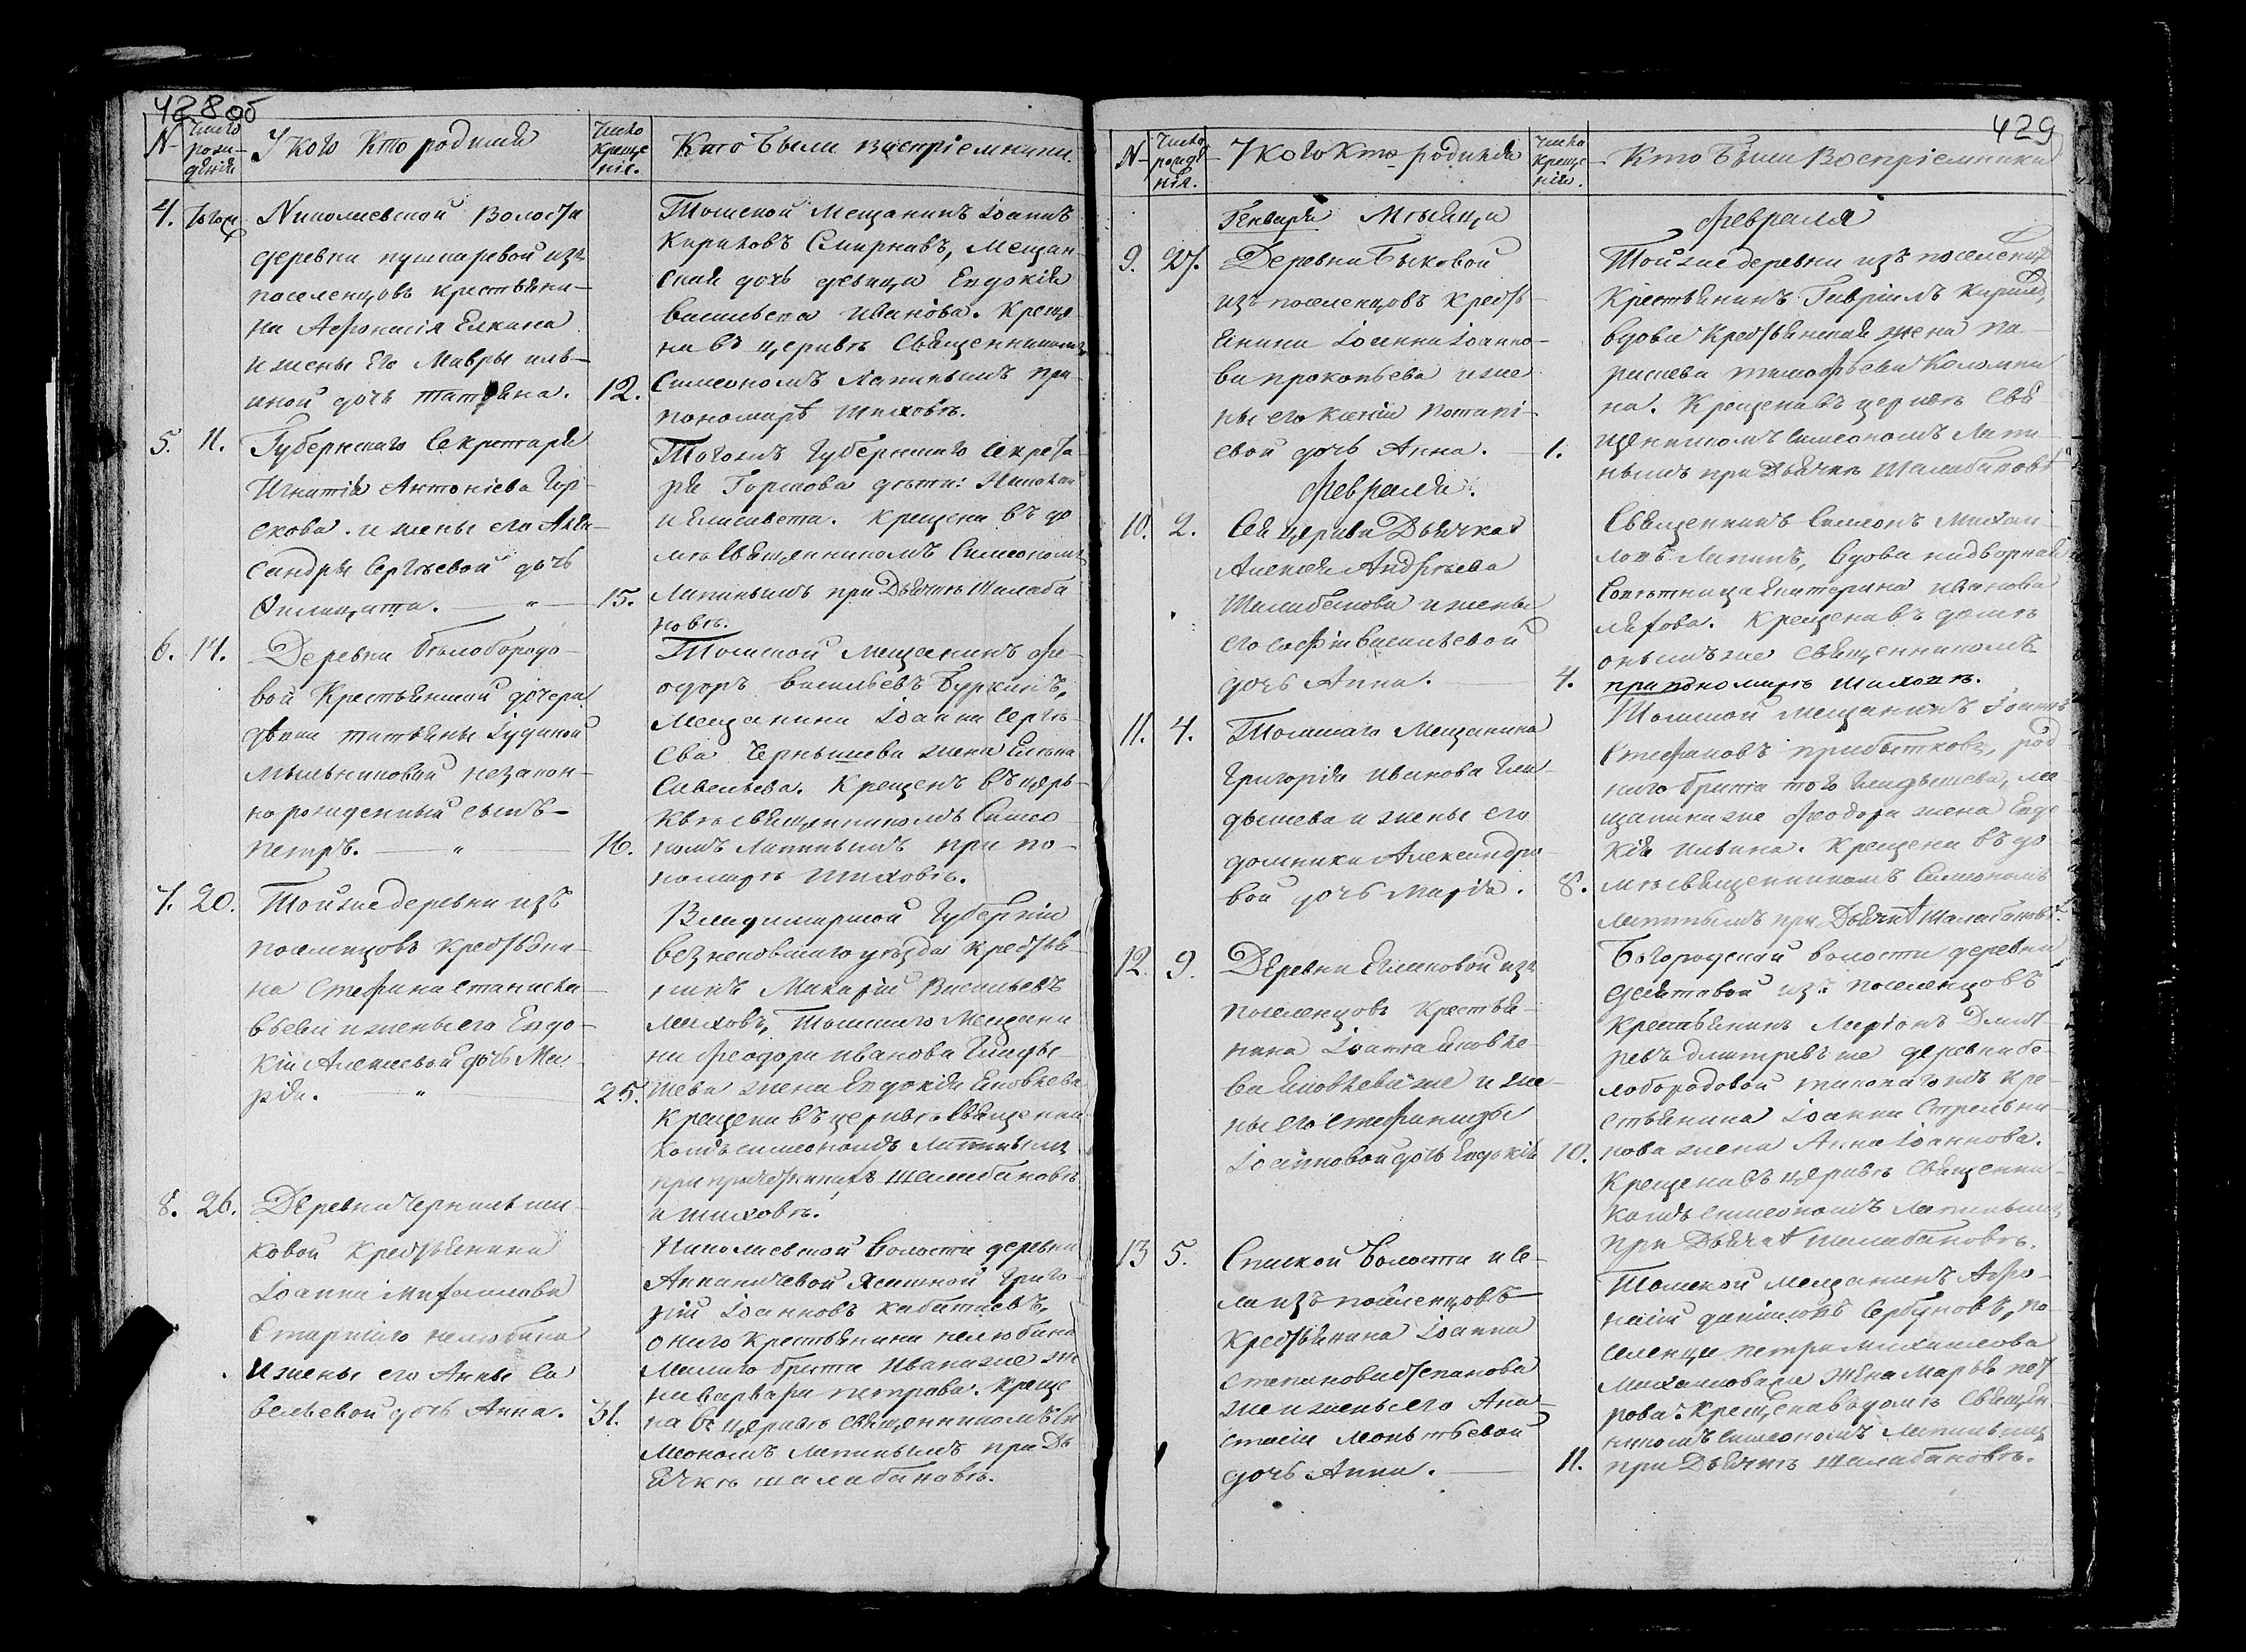 428об
N Число рожденія У кого кто родился Число крещенія. Кто были воспріемники.
4. Тогож Николаевской Волости
деревни пушкаревой изъ
поселенцовъ крестьяни-
на Афонасія Елкина
и жены Его Мавры иль-
иной дочь татьяна. 12.
Томской Мещанинъ Іоаннъ
Кириковъ Смирновъ, Мещан-
ская дочь девица Евдокія
васильева иванова. Креще-
на въ церквѣ Священникомъ
Симеономъ Лапинымъ при
пономарѣ Шиховѣ.
5. 11. Губернскаго Секретаря
Игнатія Антоніева Гор-
скова и жены его Алек-
сандры Сергѣевой дочь
15.
Тогожъ Губернскаго Секрета-
ря Горскова дѣти: Николай
и Елисавета. Крещена въ до
мѣ Священникомъ Симеономъ
Лапинымъ при Дьячкѣ Шалаба
новѣ.
6. 14. Деревни бѣлобородо-
вой Крестьянской дочери
дѣвки татьяны Іудиной
Мыльниковой незакон-
но рожденный сынъ
петръ. 16.
Томской Мещанинъ фе-
одоръ васильевъ Буркинъ,
Мещанина Іоанна Сергѣ-
ева Чернышева жена Елена
Савельева. Крещенъ въ цер-
квѣ священникомъ Симео
номъ Лапинымъ при по-
номарѣ Шиховѣ.
7. 20. Тойже деревни изъ
поселенцовъ крестьяни-
на Стефана Станисла-
вьева и жены его Евдо-
кіи Алексеевой дочь Ма-
рія. 25.
Владимирской Губерніи
везненовскаго уѣзда крестья-
нинъ Макарій Васильевъ
Томскаго Мещани
на Феодора иванова Глады-
шева жена Евдокія Яковлева
Крещена въ церквѣ Священни
комъ симеономъ Лапинымъ
при причетникахъ Шалабановѣ
и Шиховѣ.
8. 26. Деревни Чернильщи-
ковой Крестьянина
Іоанна Михаилова
Старшаго нелюбина
и жены его Анны Са
вельевой дочь Анна. 31.
Николаевской Волости деревни
Аникичевой Ясашной Григо-
рій Іоанновъ кабатаевъ,
онаго Крестьянина нелюбина
Малаго брата Ивана же же
на варвара петрова. Креще
на въ церквѣ священникомъ Си
меономъ Лапинымъ при Дь
ячкѣ Шалабановѣ.
429
N Число рожденія. У кого кто родился Число крещенія. Кто были Воспріемники
Генваря Мѣсяца
9. 27. Деревни Быковой
изъ поселенцовъ крест-
янина Іоанна Іоанно-
ва прокопьева и же
ны его Ксеніи потапі-
евой дочь Анна. 1.
февраля
Тойже деревни изъ поселенцовъ
Крестьянинъ Гавріилъ
вдова Крестьянская жена па-
раскева тимофѣева Коломни
на. Крещена въ церквѣ Свя-
щенникомъ Симеономъ Лапи-
нымъ при Дьячкѣ Шалабановѣ
февраля.
10. 2. Сея церкви Дьячка
Алексея Андрѣева
Шалабанова и жены
его софіи васильевой
дочь Анна. 4.
Священникъ Симеонъ Михаи-
ловъ Лапинъ, вдова надворная
Советница Екатерина иванова
Крещена въ домѣ
онымъ же священникомъ
при пономарѣ Шиховѣ.
11. 4. Томскаго Мещанина
Григорія иванова Гла-
дышева и жены его
домники Александро-
вой дочь Марія. 8.
Томской мещанинъ Іоаннъ
Стефановъ прибытковъ, род-
наго брата того Гладышева, ме
щанина же Феодора жена Евдо
кія Крещена въ до
мѣ священникомъ Симеономъ
Лапинымъ при Дьячкѣ Шалабановѣ.
12. 9. Деревни Еписковой изъ
поселенцовъ Крестья-
нина Іоанна яковле-
ва яковлева же и же-
ны его Стефаниды
Іоанновой дочь Евдокія 10.
Богородской волости деревни
изъ поселенцовъ
крестьянинъ Ларіонъ Дмит-
ревъ дмитревъ же деревни бе-
лобородовой кре-
стьянина Іоанна Стрельни-
кова жена Анна Іоаннова.
Крещена въ церквѣ Священни-
комъ симеономъ Лапинымъ
при Дьячкѣ Шалабановѣ.
13 5. Спаской волости и се-
ла изъ поселенцовъ
Крестьянина Іоанна
степанова степанова
же и жены его Ана-
стасіи Леонтьевой
дочь Анна. 11.
Томской мещанинъ Афо-
насій даниловъ Сергуновъ, по
селенца петра михаилова
жена Марья пет
рова. Крещена въ домѣ Священ-
никомъ симеономъ Лапинымъ
при Дьячкѣ Шалабановѣ.